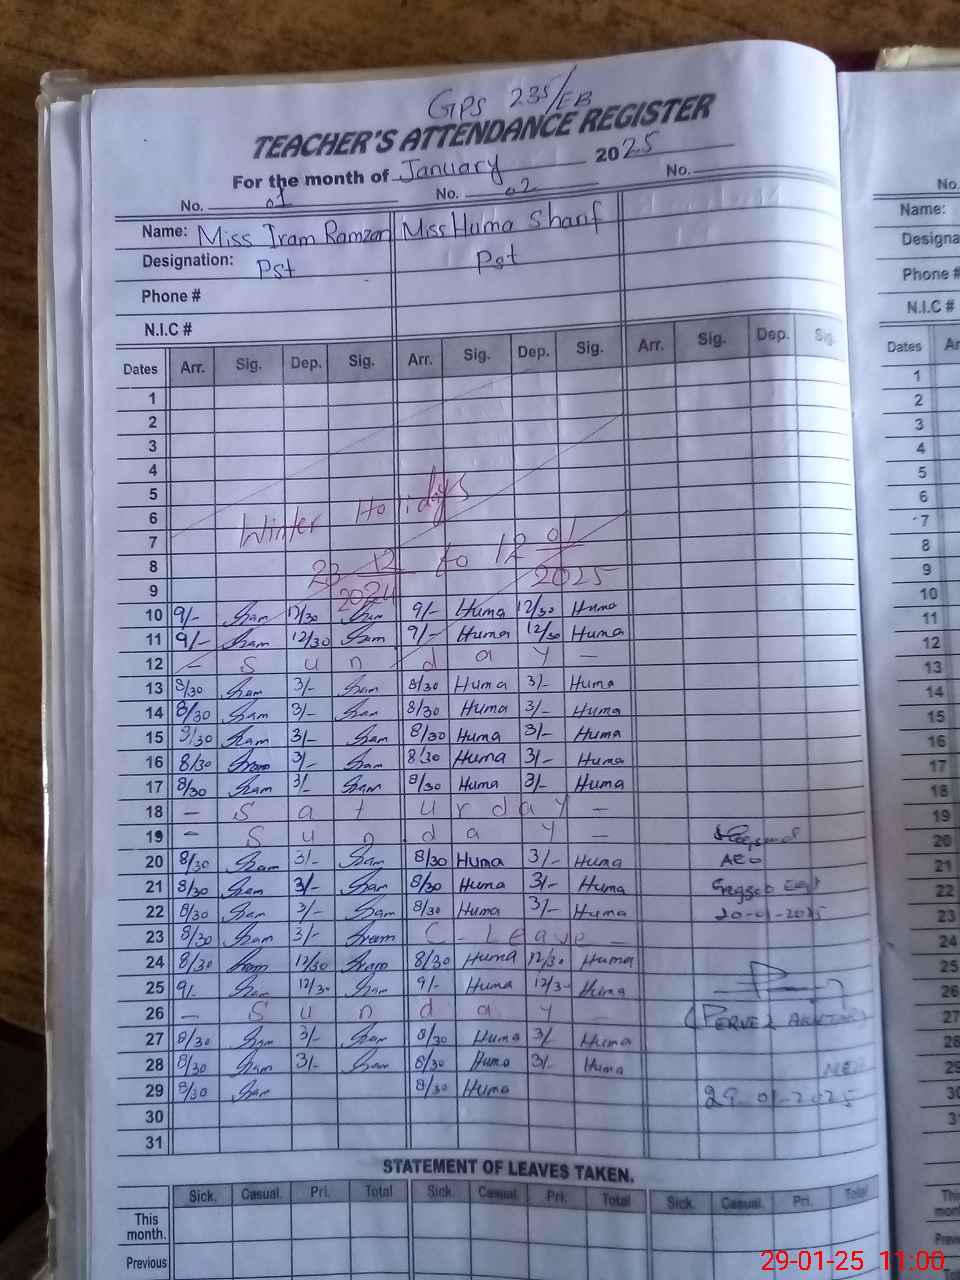 GPS 235/EB
TEACHER'S ATTENDANCE REGISTER
For the month of January 2025
No. 01 No. 02 No.
Name: Miss Iram Ramzan Miss Huma Sharif
Designation: Pst Pst
Phone #
N.I.C #
Dates Arr. Sig. Dep. Sig. Arr. Sig. Dep. Sig. Arr. Sig. Dep. Sig.
1
2
3
4
5
6
7 Winter Holidays
8 23 12/2024 to 12 01/2025
9
10 9/- Iram 12/30 Iram 9/- Huma 12/30 Huma
11 9/- Iram 12/30 Iram 9/- Huma 12/30 Huma
12 - S u n d a y -
13 8/30 Iram 3/- Iram 8/30 Huma 3/- Huma
14 8/30 Iram 3/- Iram 8/30 Huma 3/- Huma
15 8/30 Iram 3/- Iram 8/30 Huma 3/- Huma
16 8/30 Iram 3/- Iram 8/30 Huma 3/- Huma
17 8/30 Iram 3/- Iram 8/30 Huma 3/- Huma
18 - S a t u r d a y -
19 - S u n d a y -
20 8/30 Iram 3/- Iram 8/30 Huma 3/- Huma AEO
21 8/30 Iram 3/- Iram 8/30 Huma 3/- Huma
22 8/30 Iram 3/- Iram 8/30 Huma 3/- Huma 20-01-2025
23 8/30 Iram 3/- Iram C - Leave -
24 8/30 Iram 12/30 Iram 8/30 Huma 12/30 Huma
25 9/- Iram 12/30 Iram 9/- Huma 12/30 Huma
26 - S u n d a y - (PERVEZ AKHTAR)
27 8/30 Iram 3/- Iram 8/30 Huma 3/- Huma
28 8/30 Iram 3/- Iram 8/30 Huma 3/- Huma
29 8/30 Iram 8/30 Huma 29-01-2025
30
31
STATEMENT OF LEAVES TAKEN.
Sick. Casual. Pri. Total Sick. Casual. Pri. Total Sick. Casual. Pri. Total
This month.
Previous
No.
Name:
Designa
Phone #
N.I.C #
Dates Ar
1
2
3
4
5
6
7
8
9
10
11
12
13
14
15
16
17
18
19
20
21
22
23
24
25
26
27
28
29
30
29-01-25 11:00